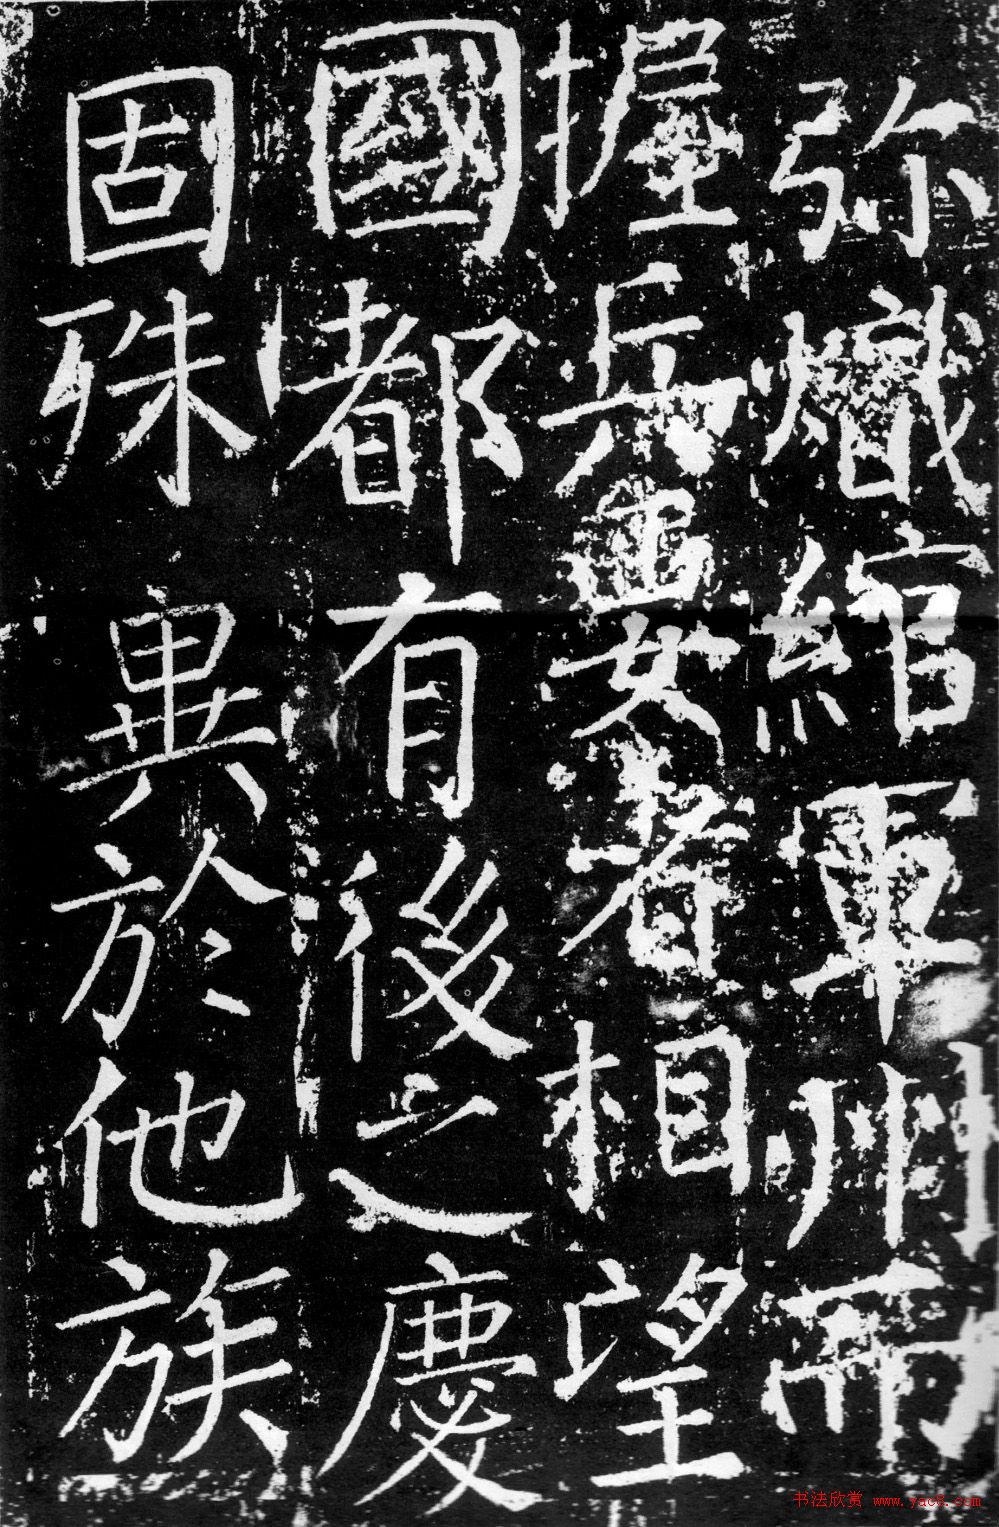 弥熾綰軍州而
握兵要者相望
國都有後之慶
固殊異於他族
书法欣赏 www.yac8.com